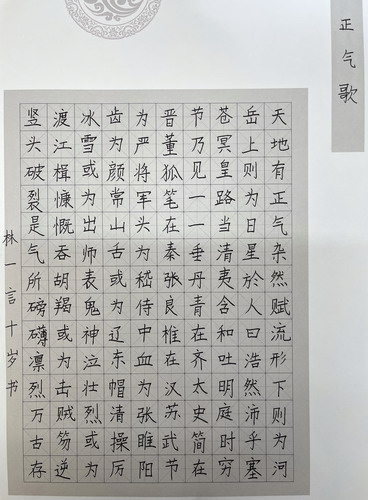 正气歌
天地有正气杂然赋流形下则为河
岳上则为日星於人曰浩然沛乎塞
苍冥皇路当清夷含和吐明庭时穷
节乃见一一垂丹青在齐太史简在
晋董狐笔在秦张良椎在汉苏武节
为严将军头为嵇侍中血为张睢阳
齿为颜常山舌或为辽东帽清操厉
冰雪或为出师表鬼神泣壮烈或为
渡江楫慷慨吞胡羯或为击贼笏逆
竖头破裂是气所磅礴凛烈万古存
林一言十岁书